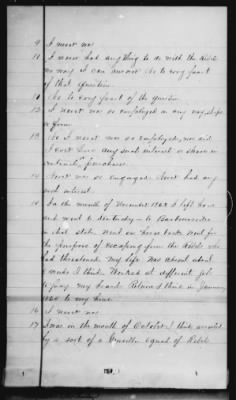 9 I never was
10 I never had anything to do with the Rebels
in any way I can answer No to every part
of that question
11 No to every part of the question
12 I never was so employed in any way, shape
or form
13 No I never was so employed, nor did
I ever have any such interest or share in
contracts for same
14 Never was so engaged. Never had any
such interest.
15 In the month of November 1863 I left home
and went to Kentucky - to Barboursville
in that state. Went on horse back went for
the purpose of escaping from the Rebels who
had threatened my life. Was absent about
6 weeks I think. Worked at different jobs
to pay my board. Returned I think in January
1864 to my home
16 I never was
17 I was in the month of October I think arrested
by a sort of a Guerrilla squad of Rebels